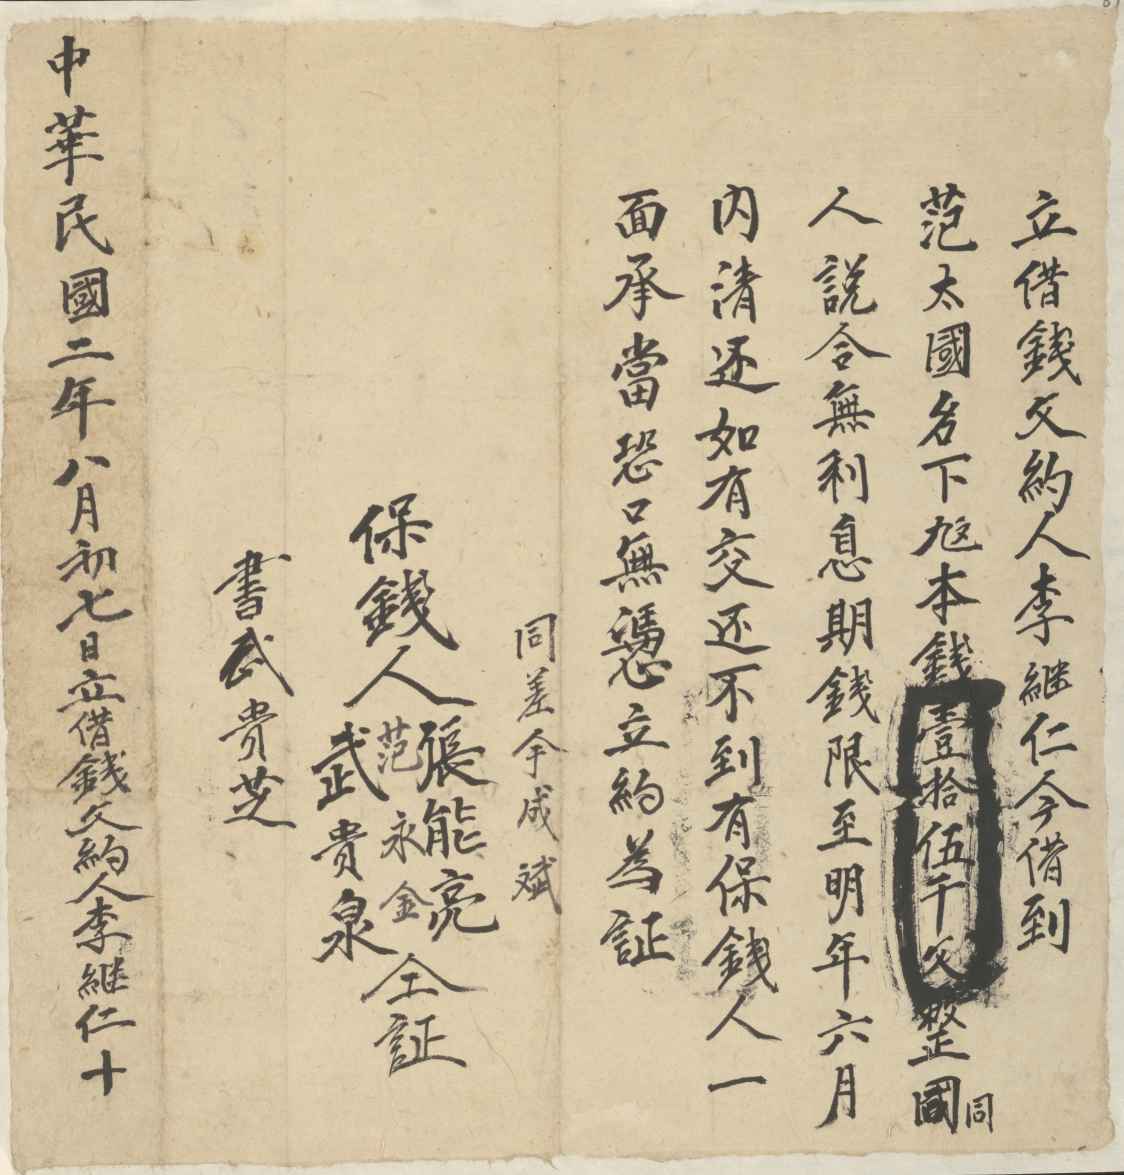 立借錢文約人李継仁今借到
范太國名下旭本錢壹拾伍千文整國同
人説合無利息期錢限至明年六月
内清还如有交还不到有保錢人一
面承當恐口無憑立約為証
同差仐成斌
保錢人張能亮
范永金
武貴泉
仝証
書武貴芝
中華民國二年八月初七日立借錢文約人李継仁十